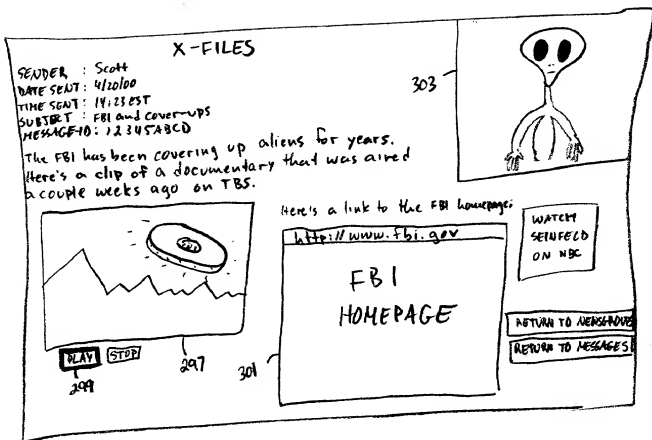 X-FILES
SENDER : Scott
DATE SENT: 4/20/00
TIME SENT: 14:23 EST
SUBJECT : FBI and cover-ups
MESSAGE-ID: 12345ABCD
The FBI has been covering up aliens for years.
Here's a clip of a documentary that was aired
a couple weeks ago on TBS.
303
Here's a link to the FBI homepage:
http://www.fbi.gov
FBI
HOMEPAGE
WATCH
SEINFELD
ON NBC
PLAY STOP
299
297
301
RETURN TO NEWSGROUPS
RETURN TO MESSAGES